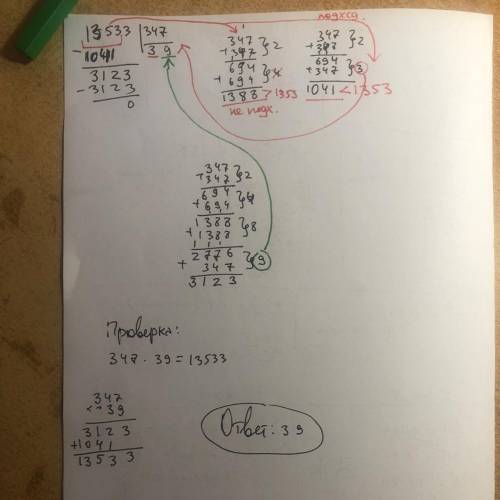 13533 | 347
- 1041 | 39
3123
- 3123
0
347
+ 347 } 2
694
+ 694 } 4
1383 > 1353
не подх.
подход.
347
+ 347 } 2
694
+ 347 } 3
1041 < 1353
347
+ 347 } 2
694
+ 694 } 4
1388
+ 1388 } 8
2776
+ 347 } 9
3123
Проверка:
347 · 39 = 13533
347
× 39
3123
+ 1041
13533
Ответ: 39